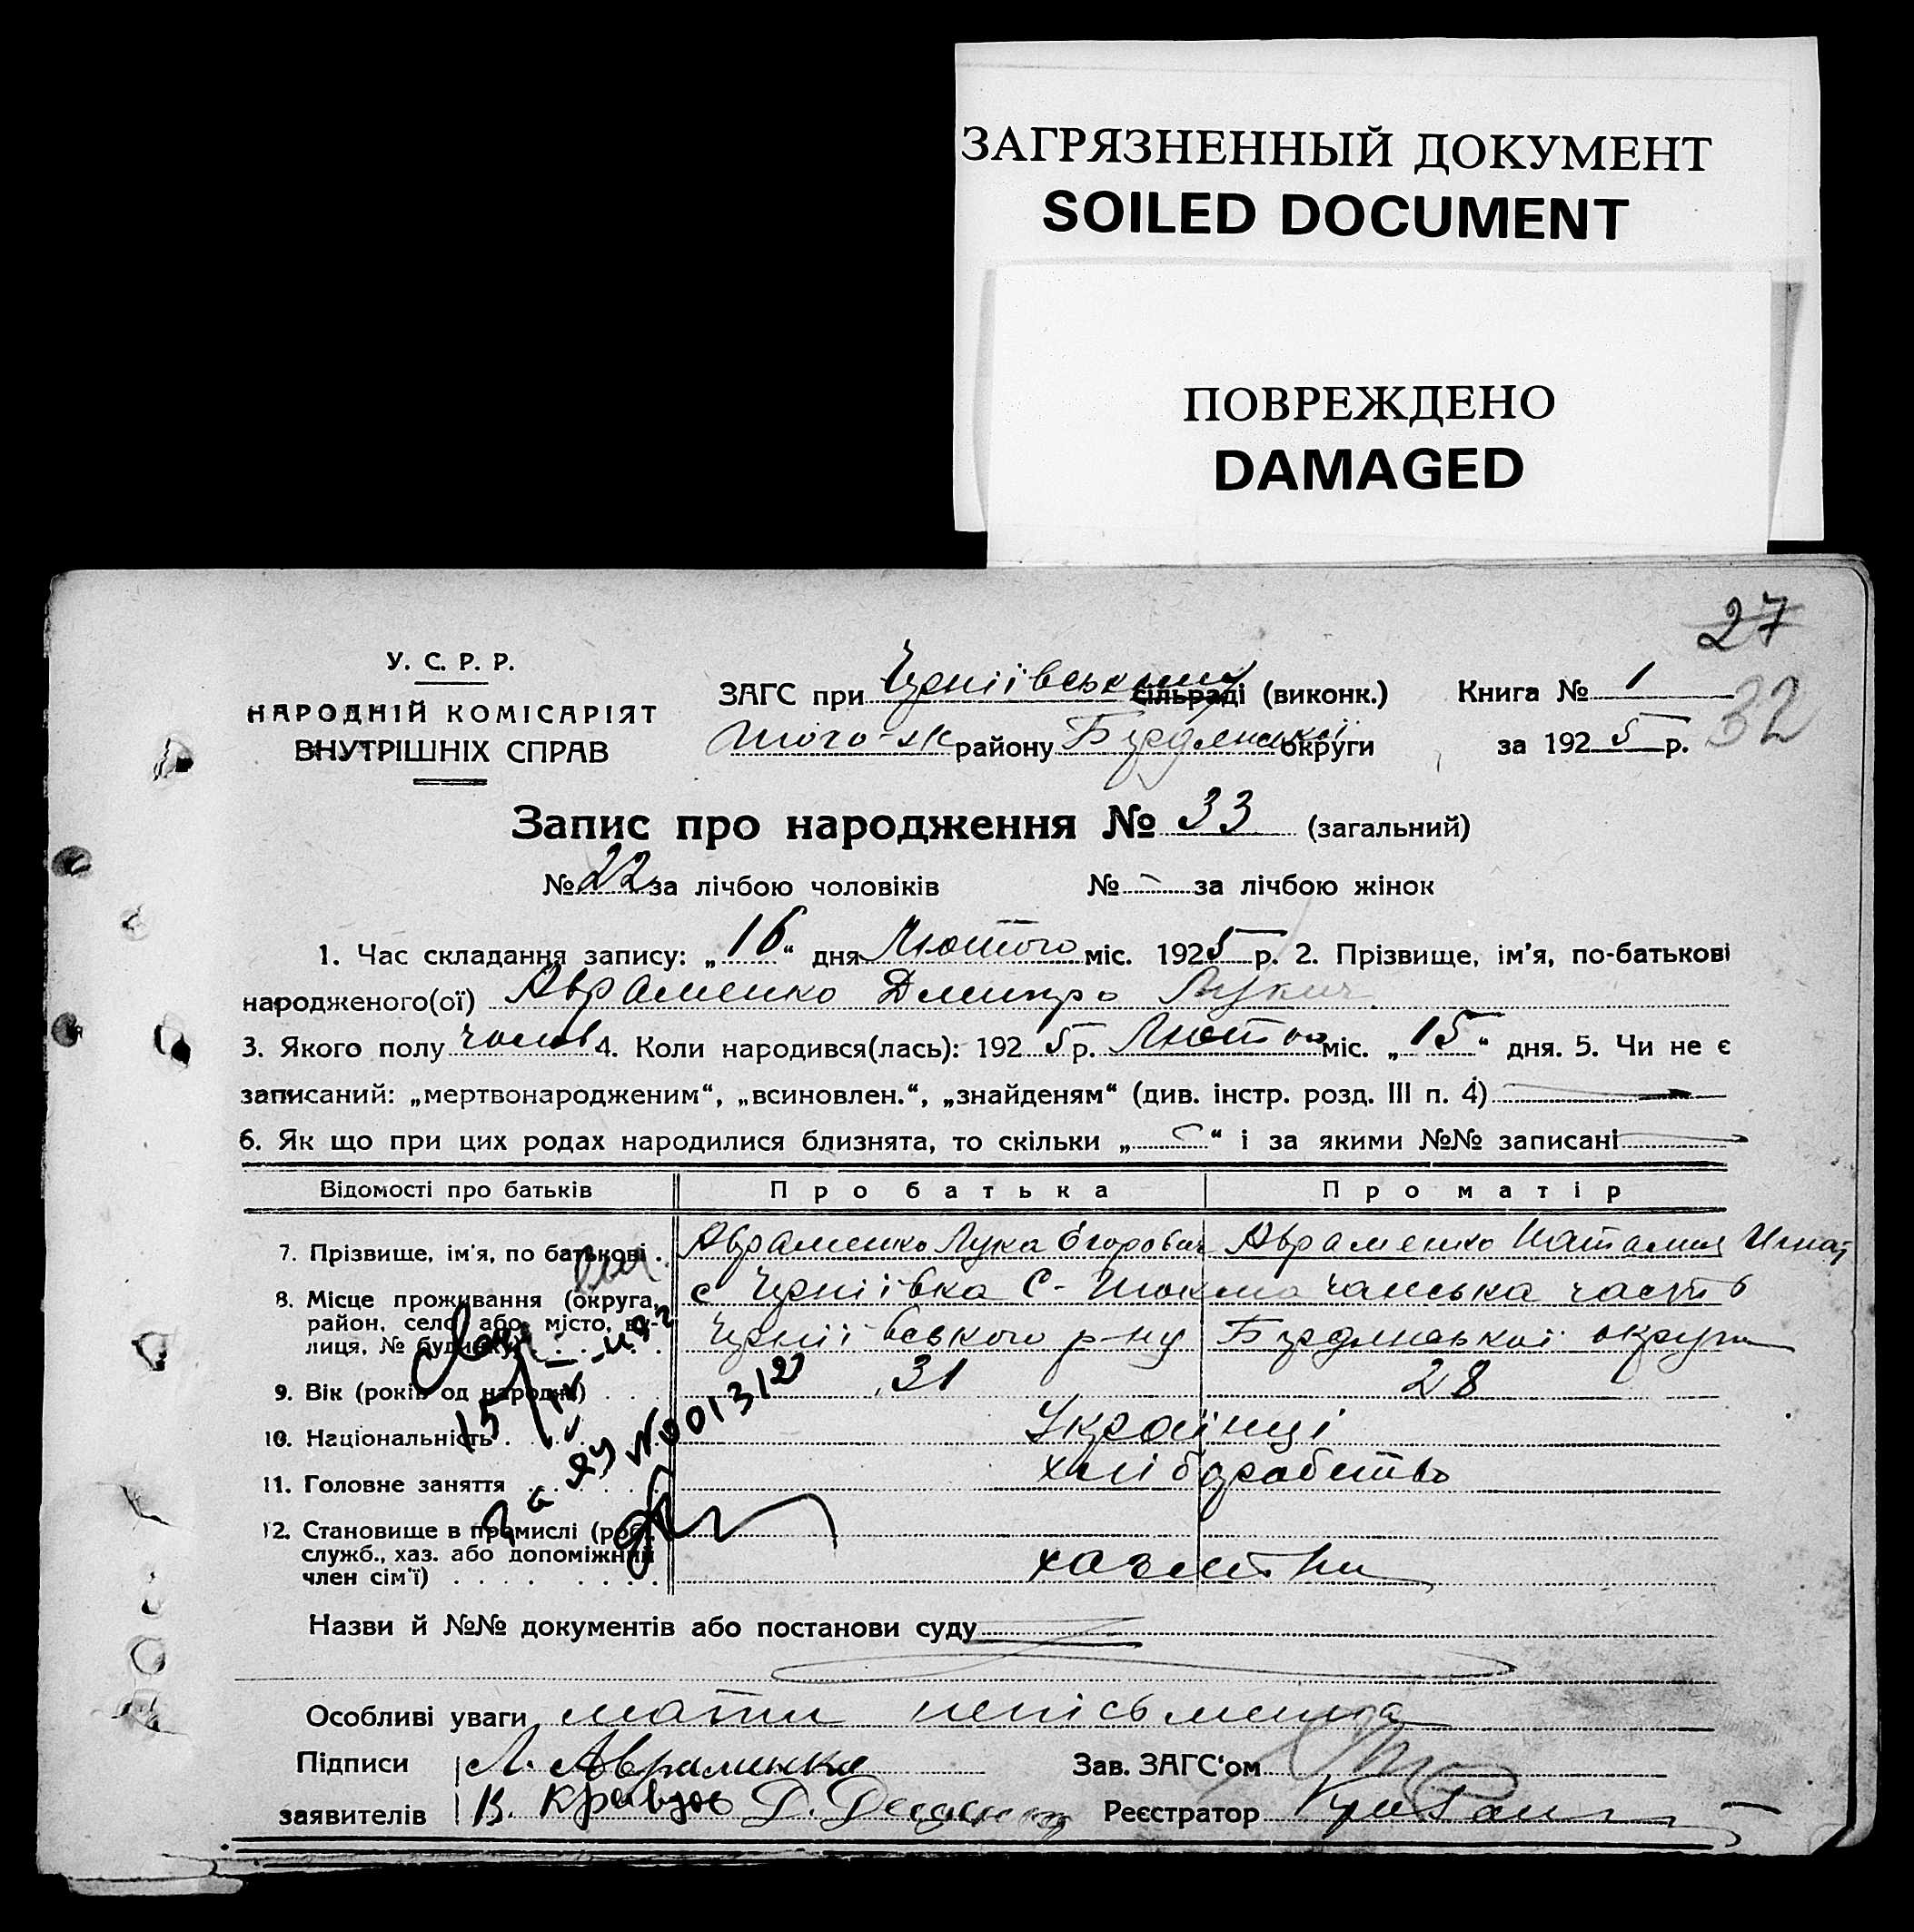 ЗАГРЯЗНЕННЫЙ ДОКУМЕНТ
SOILED DOCUMENT
ПОВРЕЖДЕНО
DAMAGED
27
32
У. С. Р. Р.
НАРОДНІЙ КОМІСАРІЯТ
ВНУТРІШНІХ СПРАВ
ЗАГС при сільраді (виконк.) Книга № 1
того-ж району Бердянської округи за 1925 р.
Запис про народження № 33 (загальний)
№ 22 за лічбою чоловіків № - за лічбою жінок
1. Час складання запису: „16“ дня Лютого міс. 1925 р. 2. Прізвище, ім'я, по-батькові
народженого(ої) Авраменко Дмитро Лукич
3. Якого полу чолов 4. Коли народився(лась): 1925 р. Лютого міс. „15“ дня. 5. Чи не є
записаний: „мертвонародженим“, „всиновлен.“, „знайденям“ (див. інстр. розд. III п. 4)
6. Як що при цих родах народилися близнята, то скільки „-“ і за якими №№ записані
Відомості про батьків Про батька Про матір
7. Прізвище, ім'я, по батькові . Авраменко Лука Егорович Авраменко Наталия Игнат
8. Місце проживання (округа, с Черніївка С-Токмачанська часть
район, село або місто, ву-
лиця, № будинку) Черніївського р-ну Бердянської округи
9. Вік (років од народж.) . . . . 31 28
10. Національність . . . . Українці
11. Головне заняття . . . . хліборобство
12. Становище в промислі (роб.,
служб., хаз. або допоміжний
член сім'ї) . . . . . . .
№ 001312
Назви й №№ документів або постанови суду
Особливі уваги мати непісьменна
Підписи Л. Авраминко Зав. ЗАГС'ом
заявителів В. Кравцов Д. Реєстратор